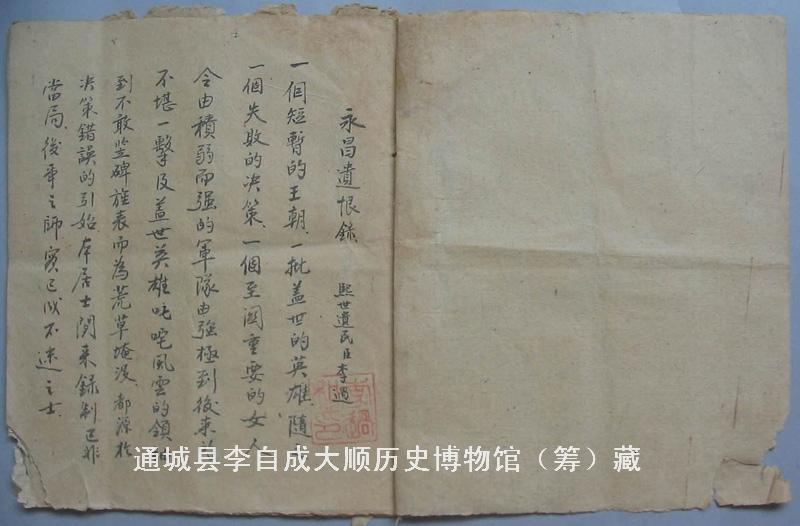 永昌遺恨錄 熙世遺民臣李過
一個短暫的王朝、一批盖世的英雄、隨
一個失敗的决策、一個至関重要的女人
令由積弱而强的軍隊由强極到後来
不堪一擊及盖世英雄叱咤風雲的領
到不敢竖碑旌表而為荒草掩沒、都源於
决策錯誤的引始、本居士閑来録制已非
當局、後事之師實已成不迷之士、
通城县李自成大顺历史博物馆（筹）藏